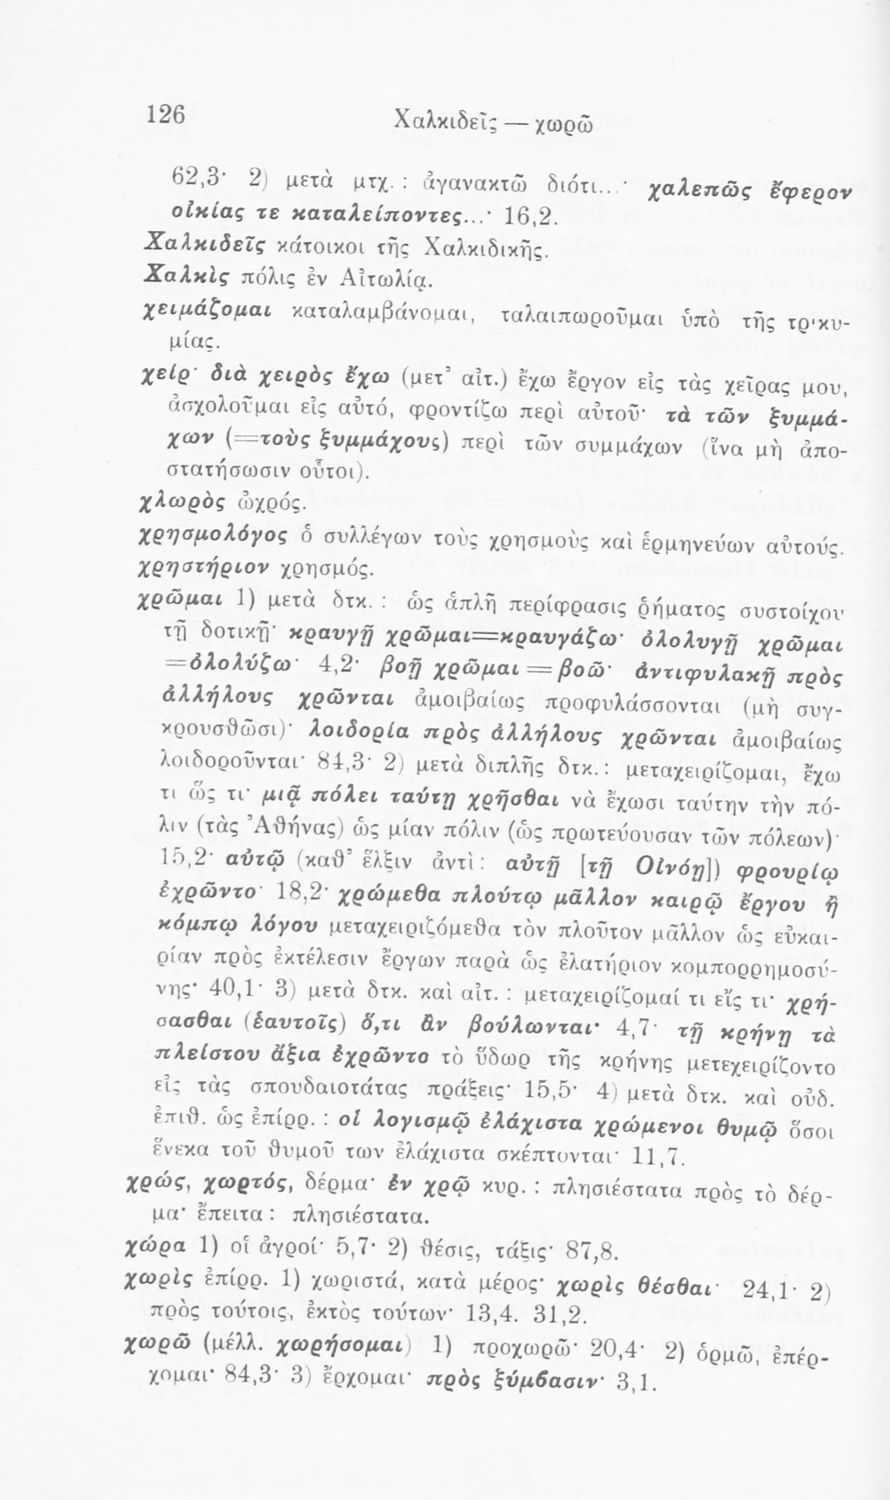 126
Χαλκιδεῖς — χωρῶ
62,3· 2) μετὰ μτχ. : ἀγανακτῶ διότι...· χαλεπῶς ἔφερον
οἰκίας τε καταλείποντες...· 16,2.
Χαλκιδεῖς κάτοικοι τῆς Χαλκιδικῆς.
Χαλκὶς πόλις ἐν Αἰτωλίᾳ.
χειμάζομαι καταλαμβάνομαι, ταλαιπωροῦμαι ὑπὸ τῆς τρικυ-
μίας.
χείρ· διὰ χειρὸς ἔχω (μετ᾽ αἰτ.) ἔχω ἔργον εἰς τὰς χεῖρας μου,
ἀσχολοῦμαι εἰς αὐτό, φροντίζω περὶ αὐτοῦ· τὰ τῶν ξυμμά-
χων (=τοὺς ξυμμάχους) περὶ τῶν συμμάχων (ἵνα μὴ ἀπο-
στατήσωσιν οὗτοι).
χλωρὸς ὠχρός.
χρησμολόγος ὁ συλλέγων τοὺς χρησμοὺς καὶ ἑρμηνεύων αὐτούς.
χρηστήριον χρησμός.
χρῶμαι 1) μετὰ δτκ. : ὡς ἁπλῆ περίφρασις ῥήματος συστοίχου
τῇ δοτικῇ· κραυγῇ χρῶμαι=κραυγάζω· ὀλολυγῇ χρῶμαι
=ὀλολύζω· 4,2· βοῇ χρῶμαι = βοῶ· ἀντιφυλακῇ πρὸς
ἀλλήλους χρῶνται ἀμοιβαίως προφυλάσσονται (μὴ συγ-
κρουσθῶσι)· λοιδορία πρὸς ἀλλήλους χρῶνται ἀμοιβαίως
λοιδοροῦνται· 84,3· 2) μετὰ διπλῆς δτκ.: μεταχειρίζομαι, ἔχω
τι ὥς τι· μιᾷ πόλει ταύτῃ χρῆσθαι νὰ ἔχωσι ταύτην τὴν πό-
λιν (τὰς Ἀθήνας) ὡς μίαν πόλιν (ὡς πρωτεύουσαν τῶν πόλεων)·
15,2· αὐτῷ (καθ᾽ ἕλξιν ἀντὶ : αὐτῇ [τῇ Οἰνόῃ]) φρουρίῳ
ἐχρῶντο· 18,2· χρώμεθα πλούτῳ μᾶλλον καιρῷ ἔργου ἢ
κόμπῳ λόγου μεταχειριζόμεθα τὸν πλοῦτον μᾶλλον ὡς εὐκαι-
ρίαν πρὸς ἐκτέλεσιν ἔργων παρὰ ὡς ἐλατήριον κομπορρημοσύ-
νης· 40,1· 3) μετὰ δτκ. καὶ αἰτ. : μεταχειρίζομαί τι εἴς τι· χρή-
σασθαι (ἑαυτοῖς) ὅ,τι ἂν βούλωνται· 4,7· τῇ κρήνῃ τὰ
πλείστου ἄξια ἐχρῶντο τὸ ὕδωρ τῆς κρήνης μετεχειρίζοντο
εἰς τὰς σπουδαιοτάτας πράξεις· 15,5· 4) μετὰ δτκ. καὶ οὐδ.
ἐπιθ. ὡς ἐπίρρ. : οἱ λογισμῷ ἐλάχιστα χρώμενοι θυμῷ ὅσοι
ἕνεκα τοῦ θυμοῦ των ἐλάχιστα σκέπτονται· 11,7.
χρώς, χωρτός, δέρμα· ἐν χρῷ κυρ. : πλησιέστατα πρὸς τὸ δέρ-
μα· ἔπειτα : πλησιέστατα.
χώρα 1) οἱ ἀγροί· 5,7· 2) θέσις, τάξις· 87,8.
χωρὶς ἐπίρρ. 1) χωριστά, κατὰ μέρος· χωρὶς θέσθαι· 24,1· 2)
πρὸς τούτοις, ἐκτὸς τούτων· 13,4. 31,2.
χωρῶ (μέλλ. χωρήσομαι) 1) προχωρῶ· 20,4· 2) ὁρμῶ, ἐπέρ-
χομαι· 84,3· 3) ἔρχομαι· πρὸς ξύμβασιν· 3,1.